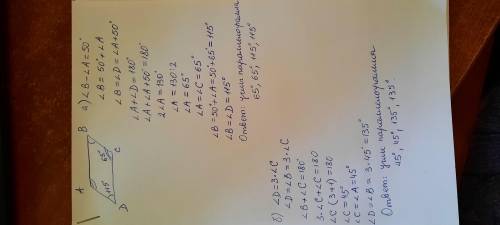 A
B
115°
65°
D
C
а) ∠B-∠A=50°
∠B = 50°+∠A
∠B=∠D=∠A+50°
∠A+∠D=180°
∠A+∠A+50°=180°
2∠A=130°
∠A=130°:2
∠A=65°
∠A=∠C=65°
∠B=50°+∠A=50°+65°=115°
∠B=∠D=115°
Ответ: углы параллелограмма
65°, 65°, 115°, 115°
б) ∠D=3·∠C
∠D=∠B=3·∠C
∠B+∠C=180°
3·∠C+∠C=180
∠C(3+1)=180
∠C=45°
∠C=∠A=45°
∠D=∠B=3·45°=135°
Ответ: углы параллелограмма
45°, 45°, 135°, 135°.